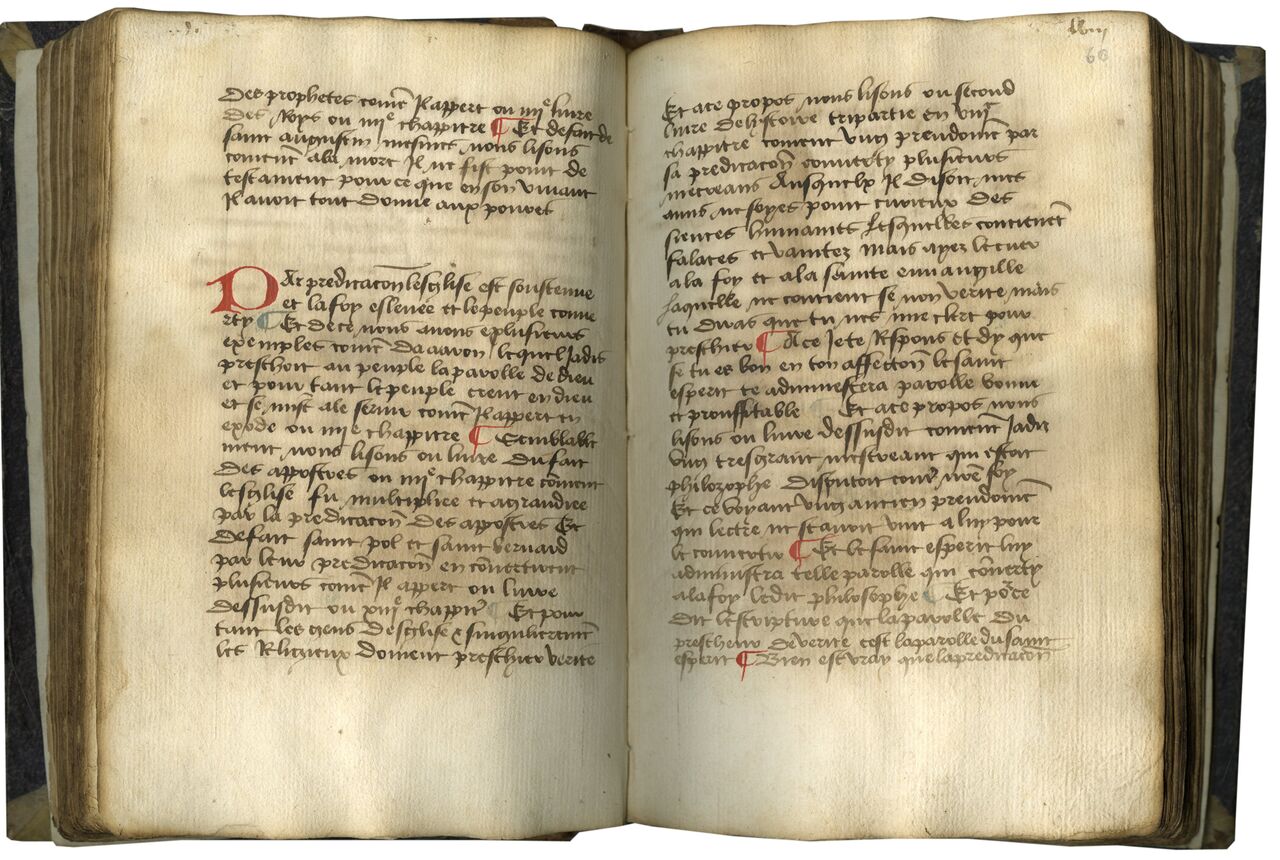 des prophetes com̄e Il appert ou iiijᵉ liure
des Roys ou iiijᵉ chappitre ¶ Et de fait de
saint augustin mesmes nous lisons
coment a la mort Il ne fist point de
testament pour ce que en son viuant
Il auoit tout donne aux poures
PAr predicacōn leglise est soustenue
et la foy esleuee et le peuple conue
rty ¶ Et de ce nous auons plusieurs
exemples com̄e da aaron lequel Jadis
preschoit au peuple la parolle de dieu
et pour tant le peuple creut en dieu
et se mist a le seruir com̄e Il appert en
exode ou iiijᵉ chappitre ¶ Semblable
ment nous lisons ou liure du fait
des appostres ou iiijᵉ chappitre cōment
leglise fu multipliee et agrandiee
par la predicacōn des appostres Et
de fait saint pol et saint bernard
par leur predicacōn en cōuertirent
plusieurs com̄e Il appert ou liure
dessusdit ou xiijᵉ chappitʳ ¶ Et pour
tant les gens deglise & singulieremēt
les Religieux doiuent preschier verite
lxviij
68
Et a ce propos nous lisons ou second
liure de listoire tripartie en viijᵉ
chappitre coment vng preudom̄e par
sa predicacōn conuerty plusieurs
mecreans Ausquelx Il disoit mes
amis ne soyes point curieux des
siences humaines lesquelles contienēt
falaces et vanitez mais ayez le cuer
a la foy et a la sainte euuangille
laquelle ne contient se non verite mais
tu diras que tu nes mie clerc pour
preschier ¶ A ce Je te Respons et dy que
se tu es bon en ton affectōn le saint
esperit te administrera parolle bonne
et prouffitable ¶ Et a ce propos nous
lisons ou liure dessusdit comēt Jadis
vng tresgrant mescreant qui estoit
philozophe disputoit contʳ nr̄e foy
Et ce voyant vng ancien preudom̄e
qui lectre ne sauoit vint a luy pour
le conuertir ¶ Et le saint esperit luy
administra telle parolle qui cōuerty
a la foy ledit philosophe ¶ Et poʳ ce
dit lescripture que la parolle du
prescheur de verite cest la parolle du saint
esperit ¶ Bien est vray que la predicacōn